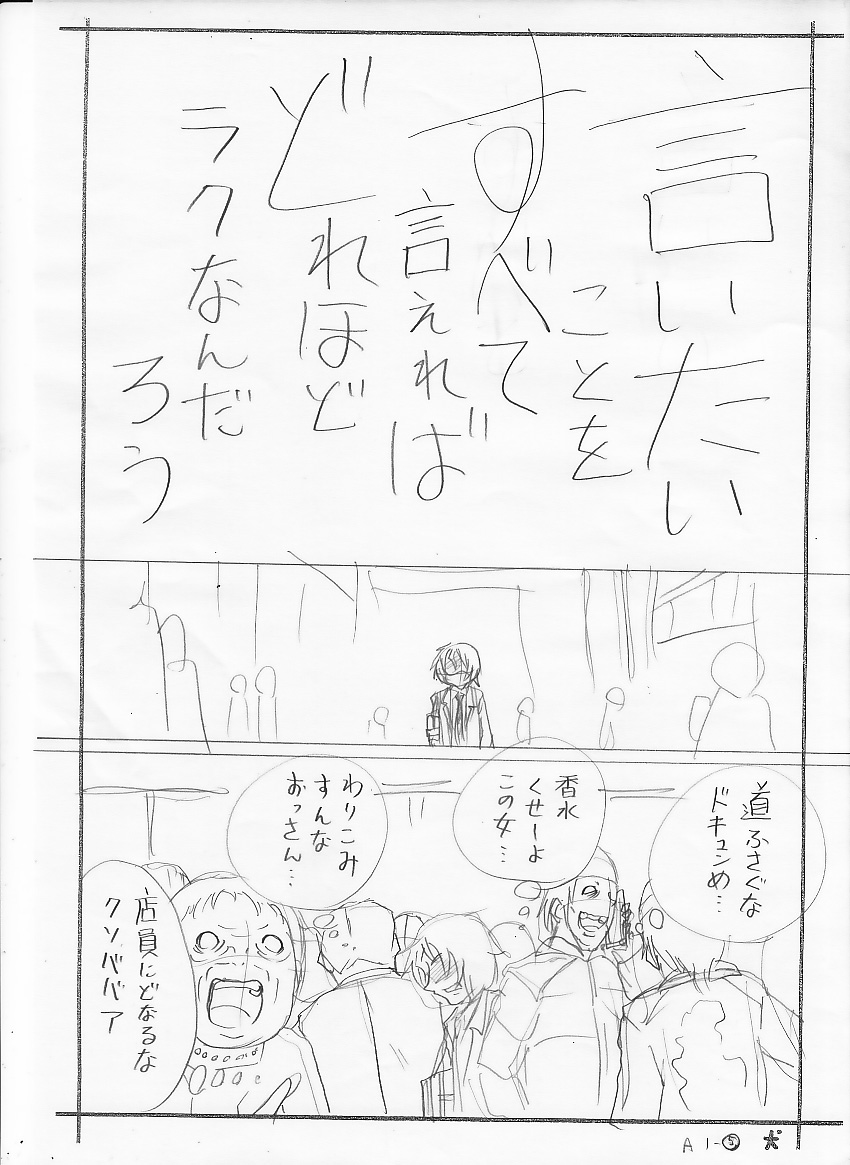 言いたい
ことを
すべて
言えれば
どれほど
ラクなんだ
ろう
道ふさぐな
ドキュンめ…
香水
くせーよ
この女…
わりこみ
すんな
おっさん…
店員にどなるな
クソババア
A1-⑤